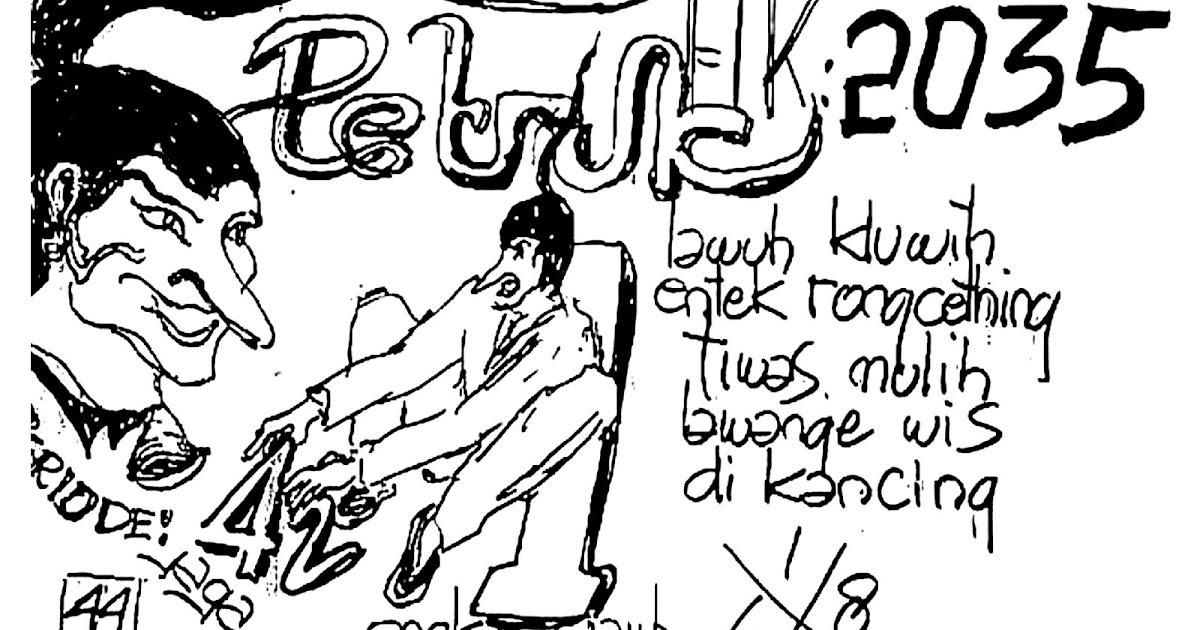 Petruk : 2035
lawuh kluwih
entek rongcething
tiwas mulih
lawange wis
di kancing
RIODE!
42
44
8